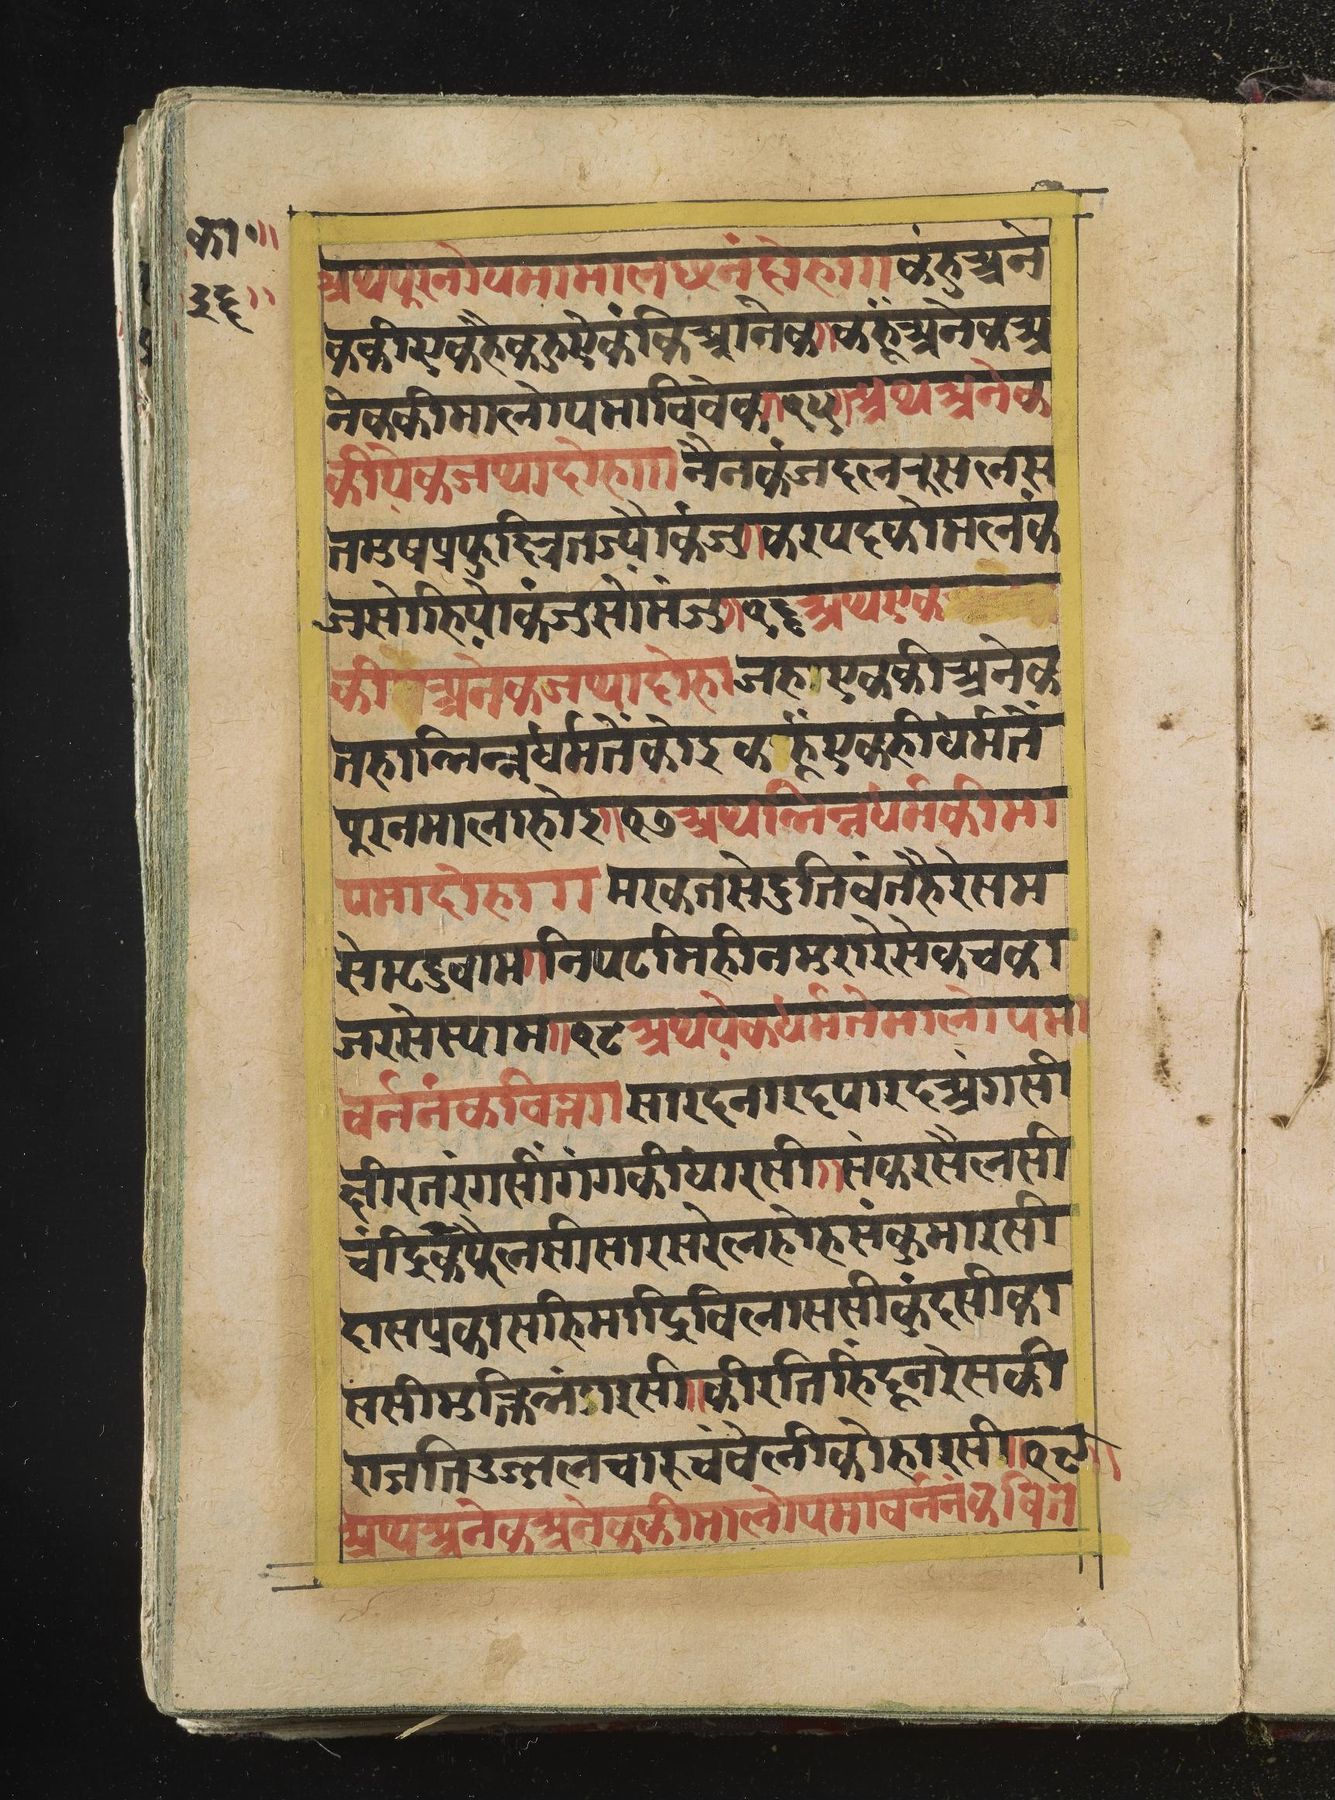 का॰॥
३६॥
अथपूरनोपमामालछनंदोहा॥॥कंहुअने
ककीएकहैकहुऐकंकिअनेक॥कहूंअनेकअ
नेककीमालोपमाविवेक॥१५॥अथअनेक
कीऐकजथादोहा॥॥नैनकंजदलनरुसलस
तमुषप्रफुल्लितज्यौकंज॥करपदकोमलकं
जसोहियेकंजुसौमंजु॥१६अथएक
कीअनेकजथादोहाजहाएककीअनेक
तहाभिन्नधर्मनैंकोइकहूंएकहीधर्मनैं
पूरनमालाहोइ॥१७अथभिन्नधर्मकीमा
पमादोहा॥॥मरकतसेदुतिवंतहैरेसम
सेमृदुवाम॥निपटमिहीनमुरारेसेकचका
जरसेस्याम॥१८अथऐकधर्मतेमालोपमा
वर्ननंकवित्त॥॥सारदनारदपारदअंगसी
छीरतरंगसींगंगकीधारसी॥संकरसैलसी
चंद्रिकापैलसीसारसरेलहोहसंकुमारसी
दासप्रकासहिमाद्रिविलाससीकुंदसीका
ससीमुक्तिनंडारसी॥कीरतिहिंदूनरेसकी
राजतिउज्जलचारुचंवेलीकोहारसी॥१९॥
अथअनेकअनेककीमालोपमावर्ननंकवित